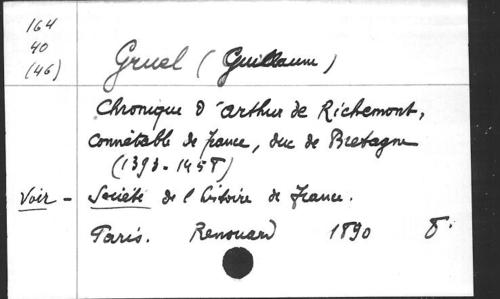 164
40
(46)
Gruel (Guillaume)
Chronique d'Arthur de Richemont,
connétable de France, duc de Bretagne
(1393-1458)
Voir - Société de l'histoire de France.
Paris. Renouard 1890 8°